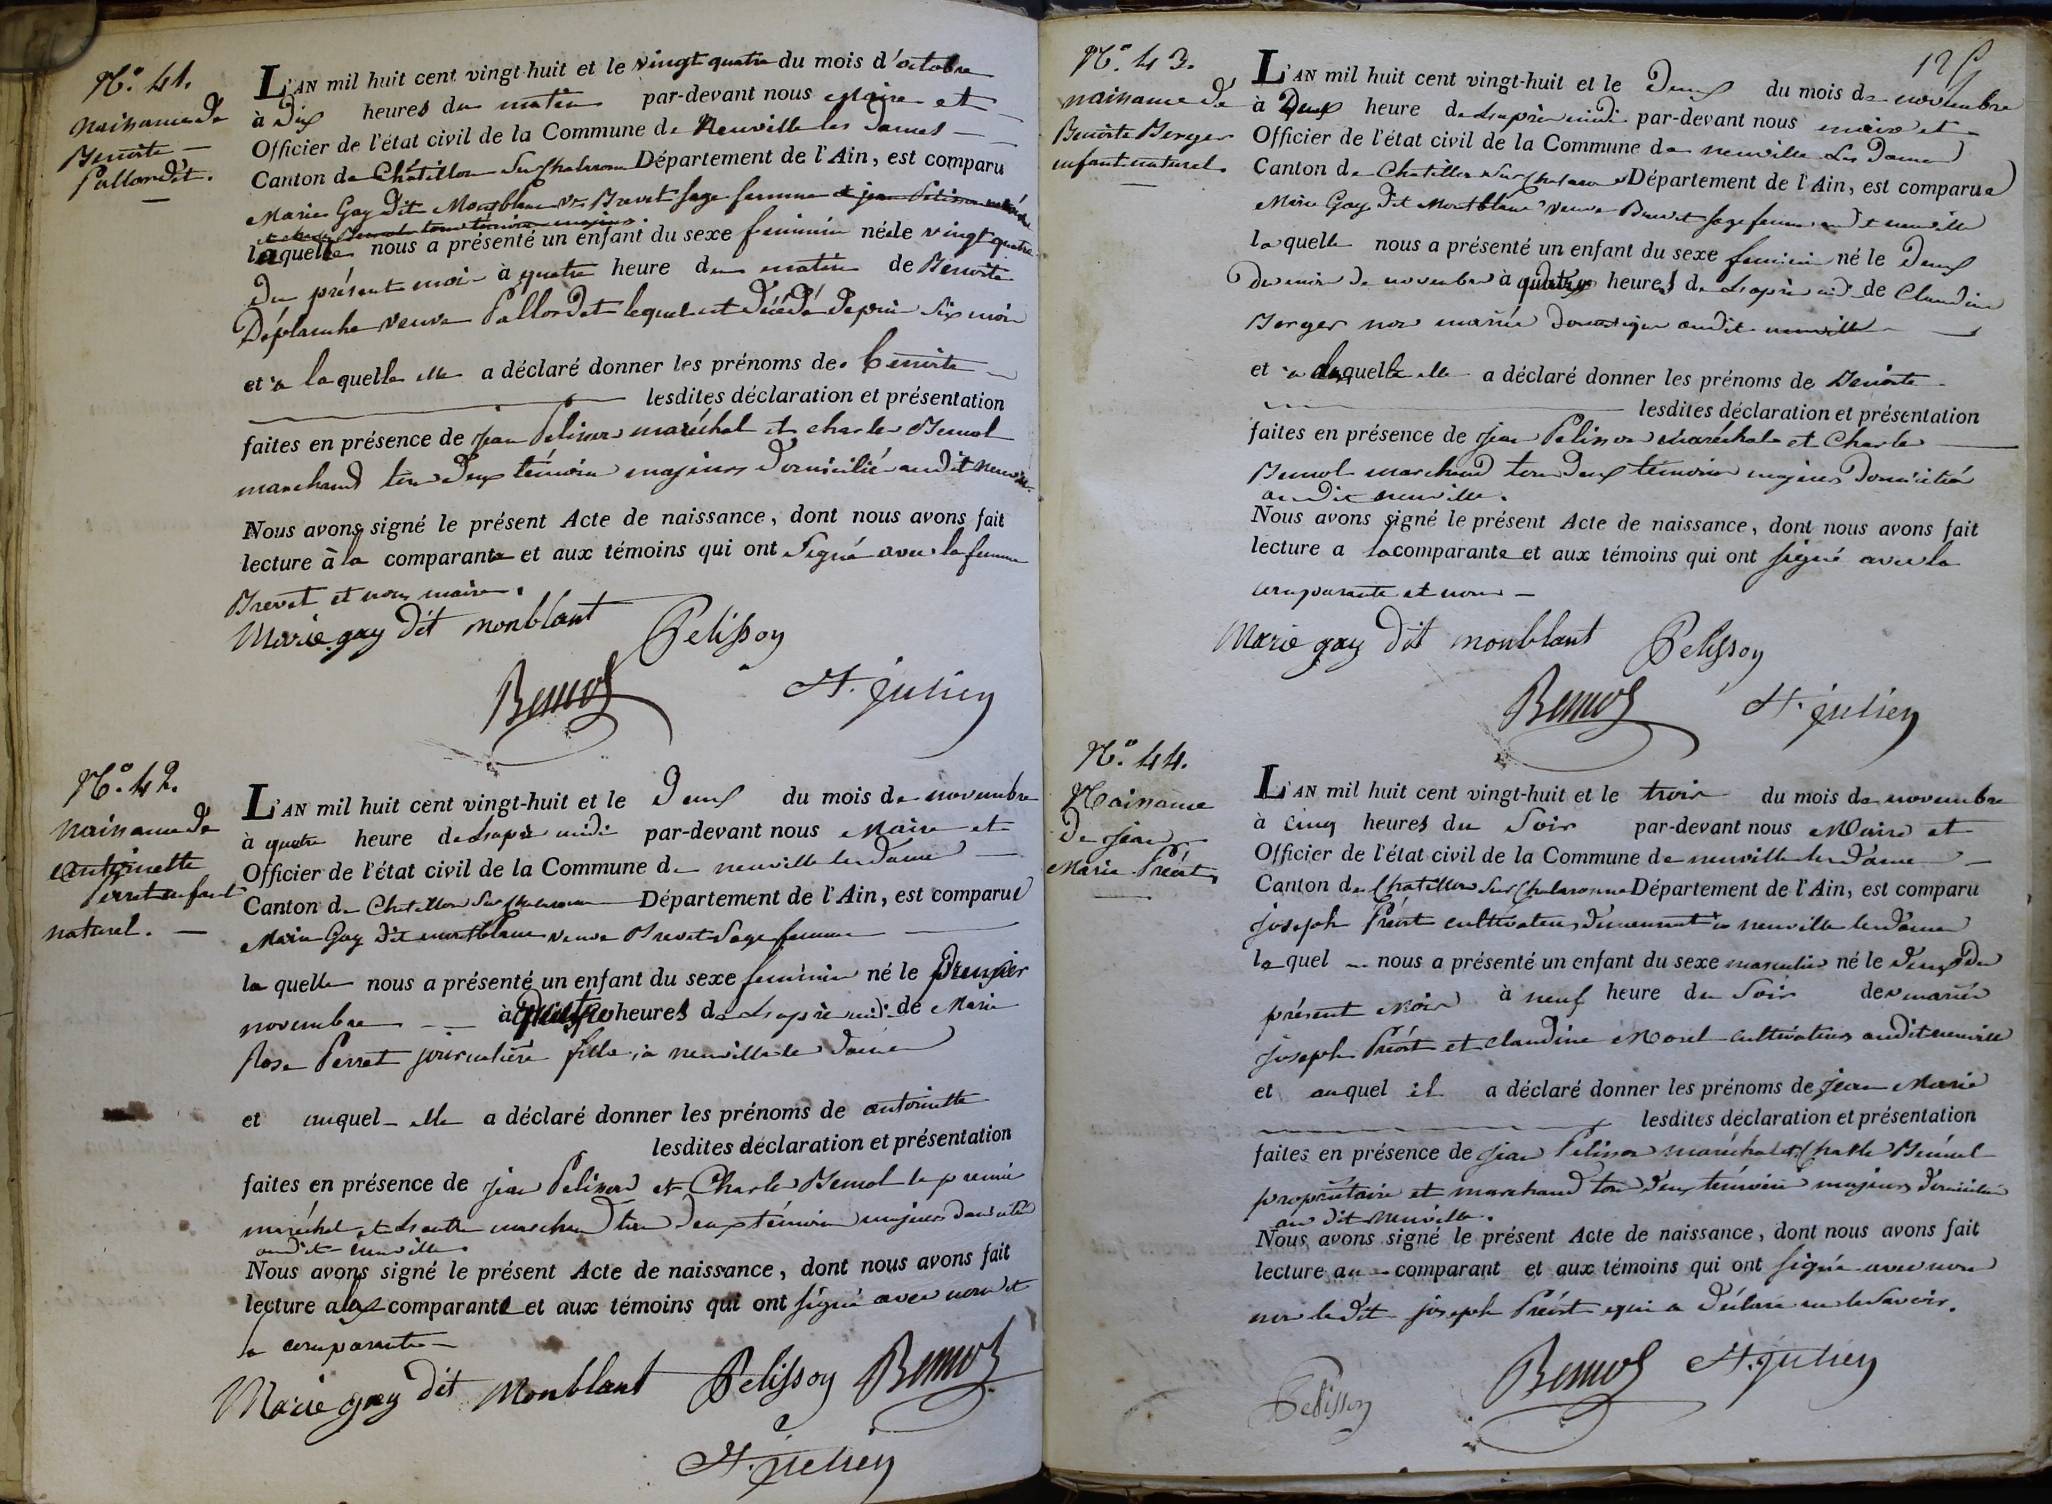 N.° 41.
naissance de
Benoite
Pallordet.
L'AN mil huit cent vingt-huit et le vingt quatre du mois d'octobre
à dix heures du matin par-devant nous Maire et
Officier de l'état civil de la Commune de Neuville les Dames
Canton de Châtillon Sur Chalaronne Département de l'Ain, est comparu
Marie Gay dit Montblanc Ve Brevet sage femme et jean Pelisson
laquelle nous a présenté un enfant du sexe feminin né le vingt quatre
du présent mois à quatre heure du matin de Benoite
Déplanche veuve Pallordet lequel est décédé depuis six mois
et à laquelle elle a déclaré donner les prénoms de Benoite
lesdites déclaration et présentation
faites en présence de jean Pelisson maréchal et charles Bemol
marchand tous deux témoins majeurs domicilié audit neuville
Nous avons signé le présent Acte de naissance, dont nous avons fait
lecture à la comparante et aux témoins qui ont signé avec la femme
Brevet et nous maire.
Marie gay dit monblant Pelisson
Bemol St. julien
N.° 42.
naissance de
antoinette
Perret enfant
naturel.
L'AN mil huit cent vingt-huit et le deux du mois de novembre
à quatre heure de laprès midi par-devant nous Maire et
Officier de l'état civil de la Commune de neuville les Dames
Canton de Chatillon Sur Chalaronne Département de l'Ain, est comparue
Marie Gay dit montblanc veuve Brevet sage femme
laquelle nous a présenté un enfant du sexe feminin né le premier
novembre à quatre heures de laprès midi de Marie
Rose Perret journalière fille, à neuville les Dames
et auquel elle a déclaré donner les prénoms de antoinette
lesdites déclaration et présentation
faites en présence de jean Pelisson et Charles Bemol le premier
maréchal et lautre marchand tous deux témoins majeurs domicilié
audit neuville.
Nous avons signé le présent Acte de naissance, dont nous avons fait
lecture a la comparante et aux témoins qui ont signé avec nous et
la comparante
Marie gay dit Monblant Pelisson Bemol
St. julien
N.° 43.
naissance de
Benoite Berger
enfant naturel.
L'AN mil huit cent vingt-huit et le deux du mois de novembre
à deux heure de laprès midi par-devant nous maire et
Officier de l'état civil de la Commune de neuville Les Dames
Canton de Chatillon Sur Chalaronne Département de l'Ain, est comparue
Marie Gay dit Montblanc veuve Brevet sage femme audit neuville
laquelle nous a présenté un enfant du sexe feminin né le deux
du mois de novembre à quatre heures de laprès midi de Claudine
Berger non mariée domestique audit neuville
et a laquelle elle a déclaré donner les prénoms de Benoite
lesdites déclaration et présentation
faites en présence de jean Pelisson maréchal et Charles
Bemol marchand tous deux témoins majeurs domiciliés
audit neuville.
Nous avons signé le présent Acte de naissance, dont nous avons fait
lecture a la comparante et aux témoins qui ont signé avec la
comparante et nous
Marie gay dit monblant Pelisson
Bemol St. julien
N.° 44.
Naissance
De jean
Marie Préost
L'AN mil huit cent vingt-huit et le trois du mois de novembre
à cinq heures du soir par-devant nous Maire et
Officier de l'état civil de la Commune de neuville les dames
Canton de Chatillon Sur Chalaronne Département de l'Ain, est comparu
joseph Préost cultivateur demeurant à neuville les dames
lequel nous a présenté un enfant du sexe masculin né le deux du
présent mois à neuf heure du soir de mariés
joseph Préost et claudine Morel cultivateurs audit neuville
et auquel il a déclaré donner les prénoms de jean Marie
lesdites déclaration et présentation
faites en présence de jean Pelisson maréchal et Charle Bemol
propriétaire et marchand tous deux témoins majeurs domicilié
audit neuville.
Nous avons signé le présent Acte de naissance, dont nous avons fait
lecture au comparant et aux témoins qui ont signé avec nous
non ledit joseph Préost qui a déclaré ne le savoir.
Pelisson Bemol St. julien